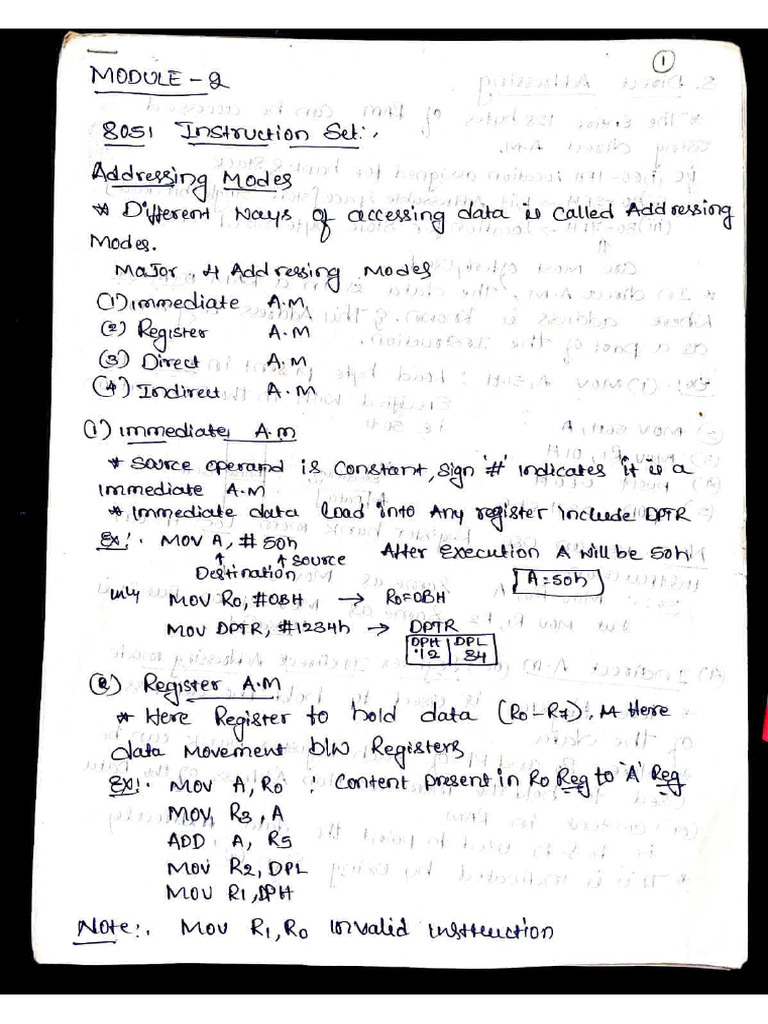 1
MODULE - 2
8051 Instruction Set:.
Addressing Modes
* Different Ways of accessing data is called Addressing
Modes.
Major. 4 Addressing Modes
(1) immediate A.M
(2) Register A.M
(3) Direct A.M
(4) Indirect A.M
(1) immediate A.M
* Source operand is constant, sign '#' indicates it is a
immediate A.M
* Immediate data load into Any register include DPTR
Ex:. MOV A, #50h After Execution A will be 50h
↑ ↑ Source
Destination A=50h
MOV R0, #0BH → R0=0BH
MOV DPTR, #1234h → DPTR
DPH DPL
12 34
(2) Register A.M
* Here Register to hold data (R0-R7). Here
data Movement b/w Registers
Ex:. MOV A, R0 : Content present in R0 Reg to 'A' Reg
MOV R3, A
ADD A, R5
MOV R2, DPL
MOV R1, DPH
Note:. MOV R1, R0 invalid instruction